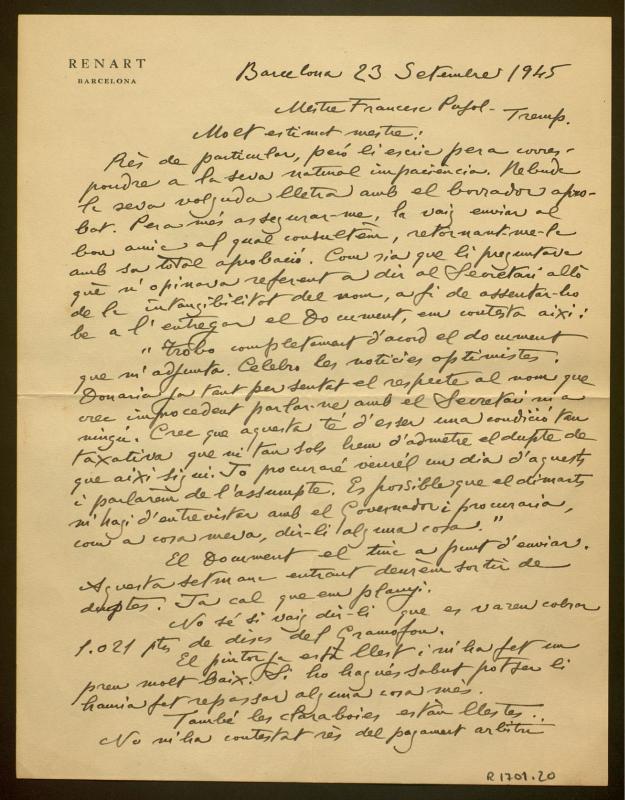 RENART
BARCELONA
Barcelona 23 Setembre 1945
Mestre Francesc Pujol - Tremp.
Molt estimat mestre:
Rès de particular, però li escric per a corres-
pondre a la seva natural impaciència. Rebuda
la seva volguda lletra amb el borrador apro-
bat. Per a més assegurar-me, la vaig enviar al
bon amic al qual consultèm, retornant-me-la
amb sa total aprobació. Com sia que li preguntava
què n'opinava referent a dir al Secretari allò
de la intangibilitat del nom, a fi de assentar-ho
be a l'entregar el Document, em contesta així:
"Trobo completament d'acord el document
que m'adjunta. Celebro les notícies optimistes.
Donaria ja tant per sentat el respecte al nom que
crec improcedent parlar-ne amb el Secretari ni a
ningú. Crec que aquesta té d'esser una condició tan
taxativa que ni tan sols hem d'admetre el dupte de
que així sigui. Jo procuraré veure'l un dia d'aquests
i parlarem de l'assumpte. Es possible que el dimarts
m'hagi d'entrevistar amb el Governador i procuraria,
com a cosa meva, dir-li alguna cosa."
El Document el tinc a punt d'enviar.
Aquesta setmana entrant deurèm sortir de
duptes. Ja cal que em planyi.
No sé si vaig dir-li que es varen cobrar
1.021 ptes de discs del Gramofon.
El pintor ja està llest i m'ha fet un
preu molt baix. Si ho hagués sabut potser li
hauria fet repassar alguna cosa mès.
També les claraboies estàn llestes..
No m'ha contestat rès del pagament arbitri
R 1701.20